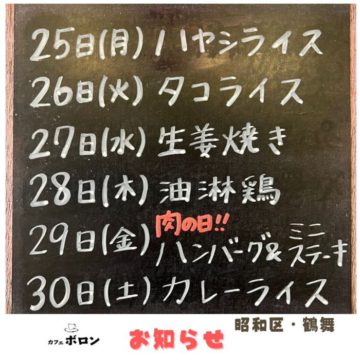 25日(月) ハヤシライス
26日(火) タコライス
27日(水) 生姜焼き
28日(木) 油淋鶏
肉の日!!
29日(金) ハンバーグ&ミニステーキ
30日(土) カレーライス
カフェ ボロン
お知らせ
昭和区・鶴舞